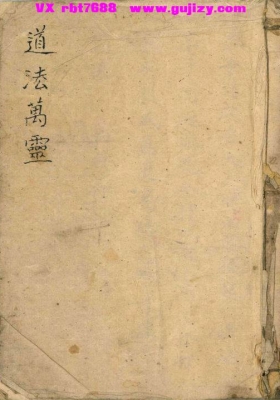 VX rbt7688 www.gujizy.com
道法萬靈